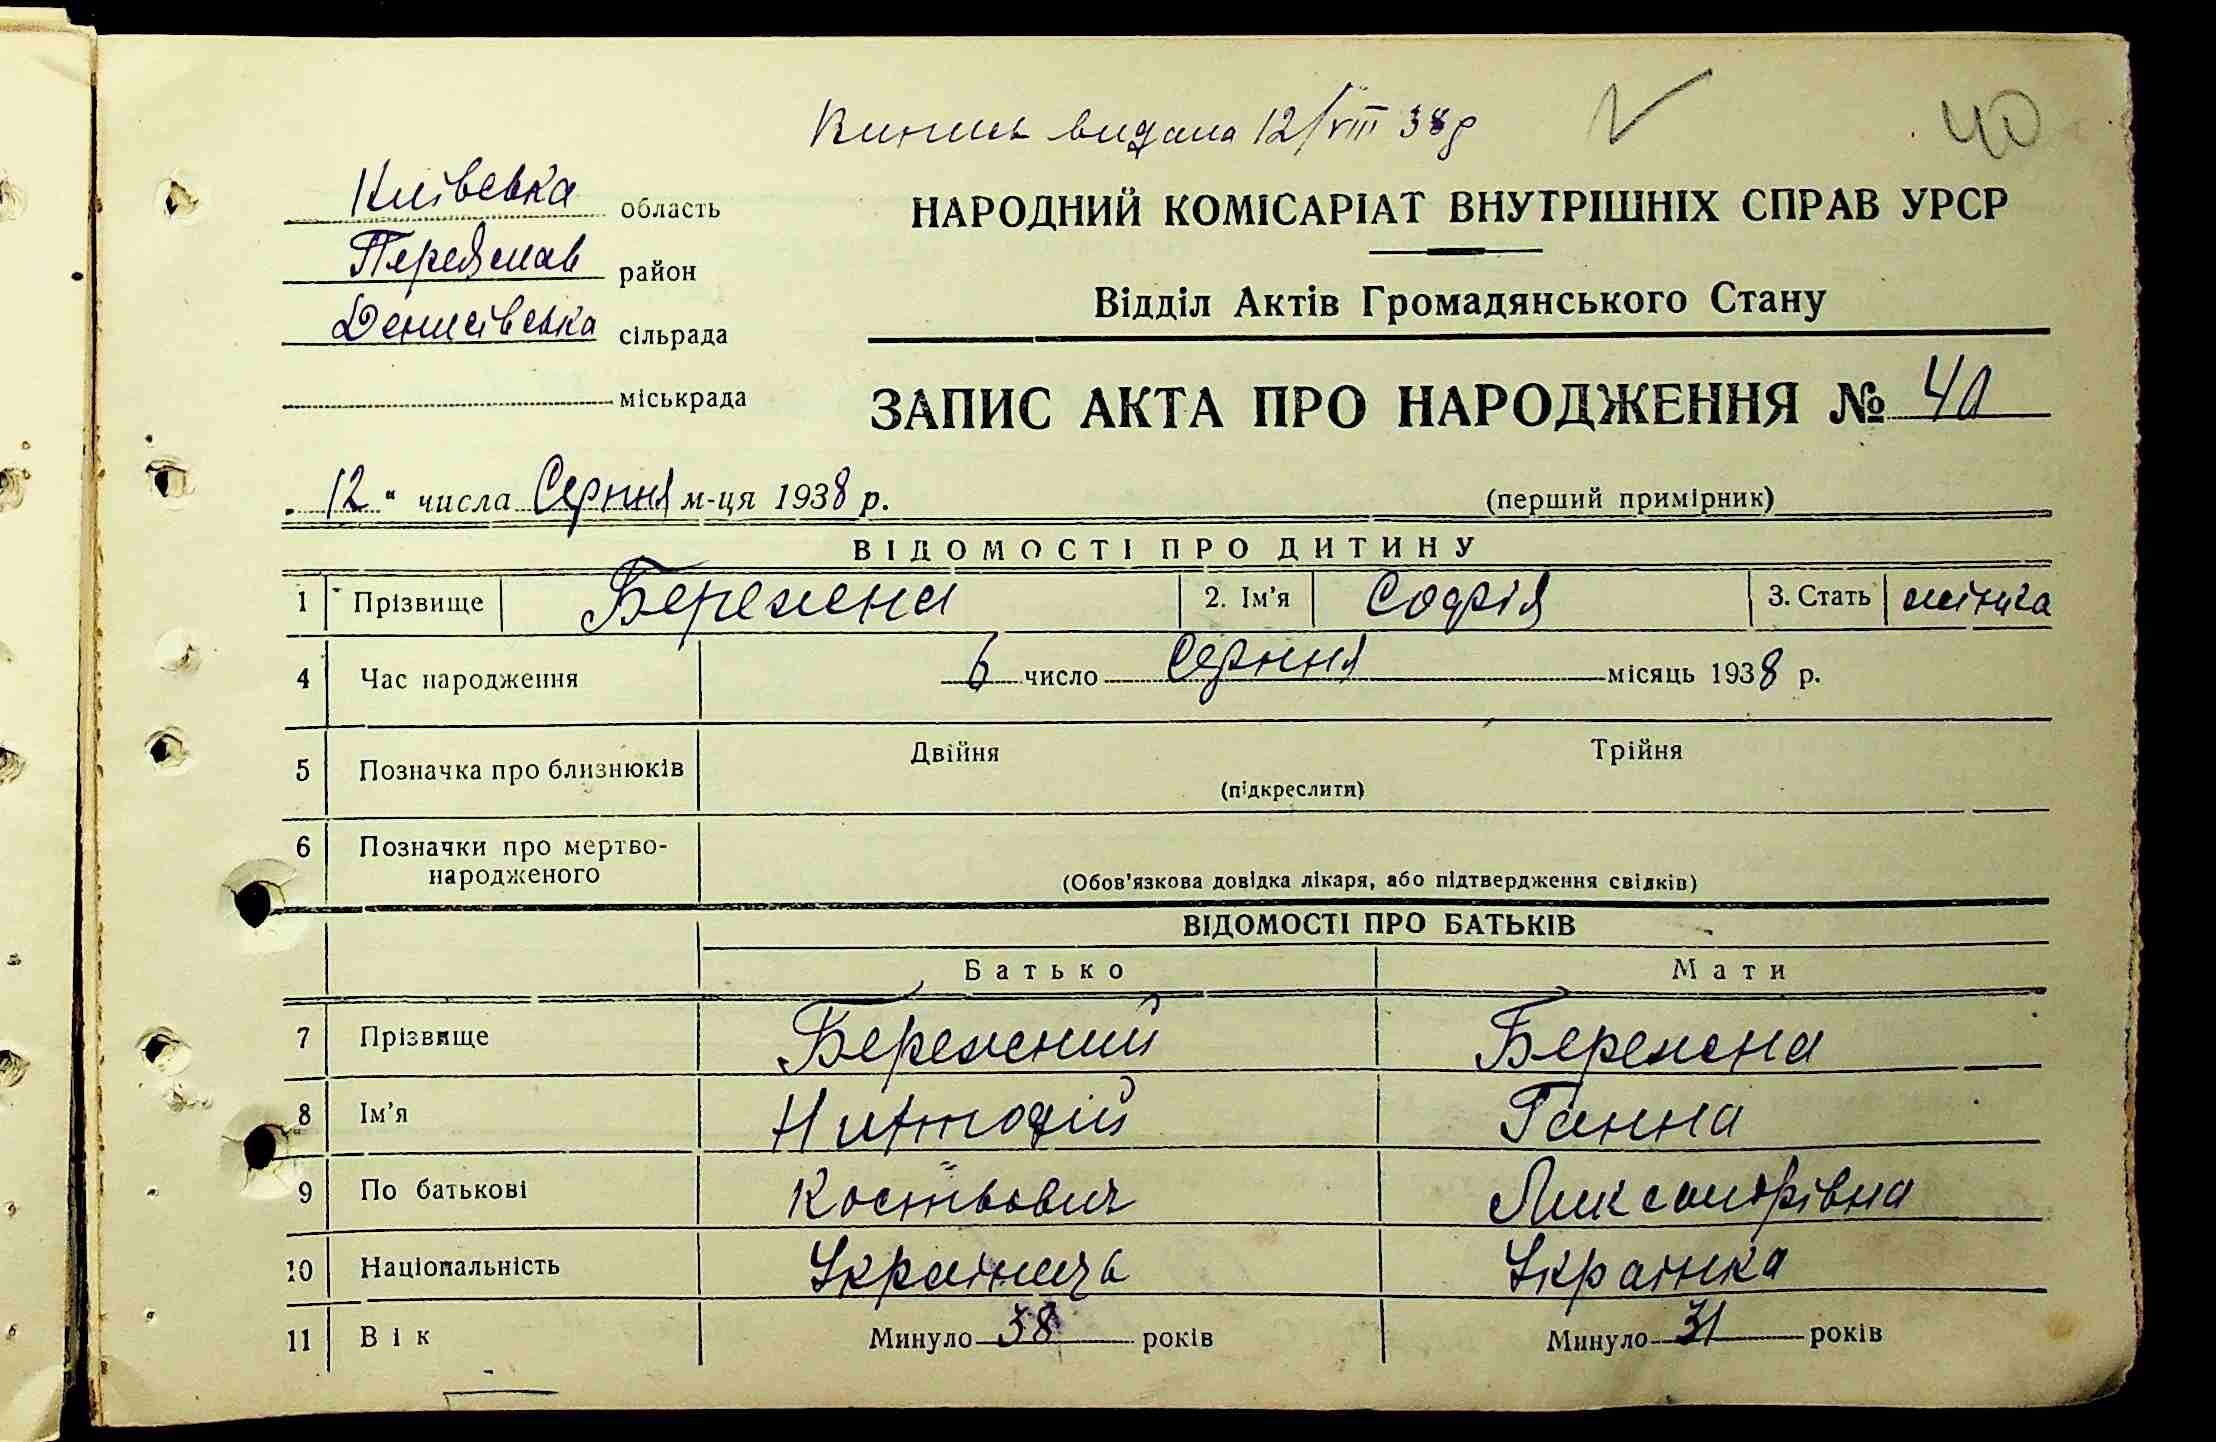 видана 12/VIII 38 р
40
Київська область
Переяслав район
Денисівська сільрада
міськрада
НАРОДНИЙ КОМІСАРІАТ ВНУТРІШНІХ СПРАВ УРСР
Відділ Актів Громадянського Стану
ЗАПИС АКТА ПРО НАРОДЖЕННЯ № 40
„12" числа Серпня м-ця 1938 р.
(перший примірник)
ВІДОМОСТІ ПРО ДИТИНУ
1 Прізвище Бережна 2. Ім'я Софія 3. Стать жінка
4 Час народження 6 число Серпня місяць 1938 р.
5 Позначка про близнюків Двійня Трійня
(підкреслити)
6 Позначки про мертво-
народженого
(Обов'язкова довідка лікаря, або підтвердження свідків)
ВІДОМОСТІ ПРО БАТЬКІВ
Батько Мати
7 Прізвище Бережний Бережна
8 Ім'я Ганна
9 По батькові Костьович Ликсандрівна
10 Національність Українець Українка
11 Вік Минуло 38 років Минуло 31 років